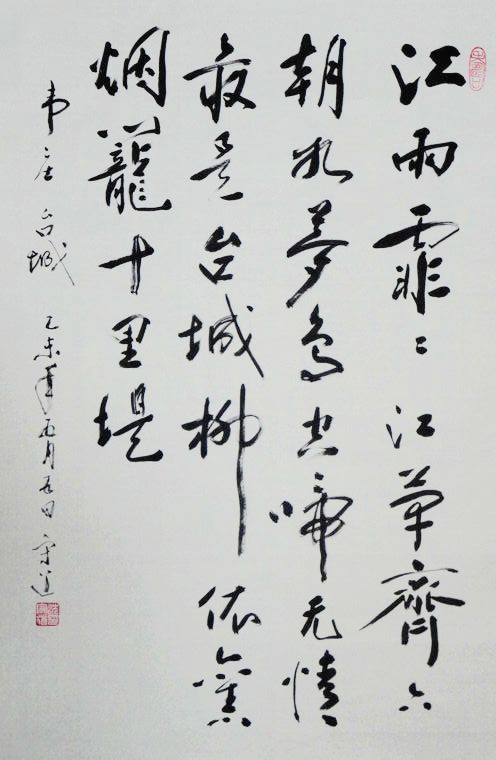 江雨霏々江草齊六
朝如夢鸟空啼无情
最是台城柳依舊
烟籠十里堤
韦庄台城 乙未年五月五日